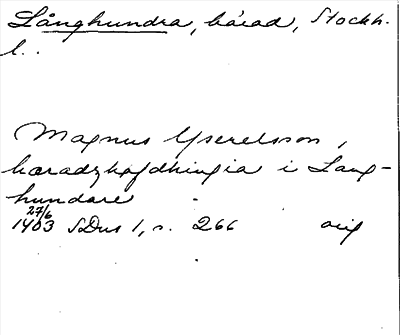 Långhundra, härad, Stockh.
l..
Magnus Yserelsson,
hæradzhøfdhingia i Lang-
hundare
27/6
1403 SDns 1, s. 266 orig